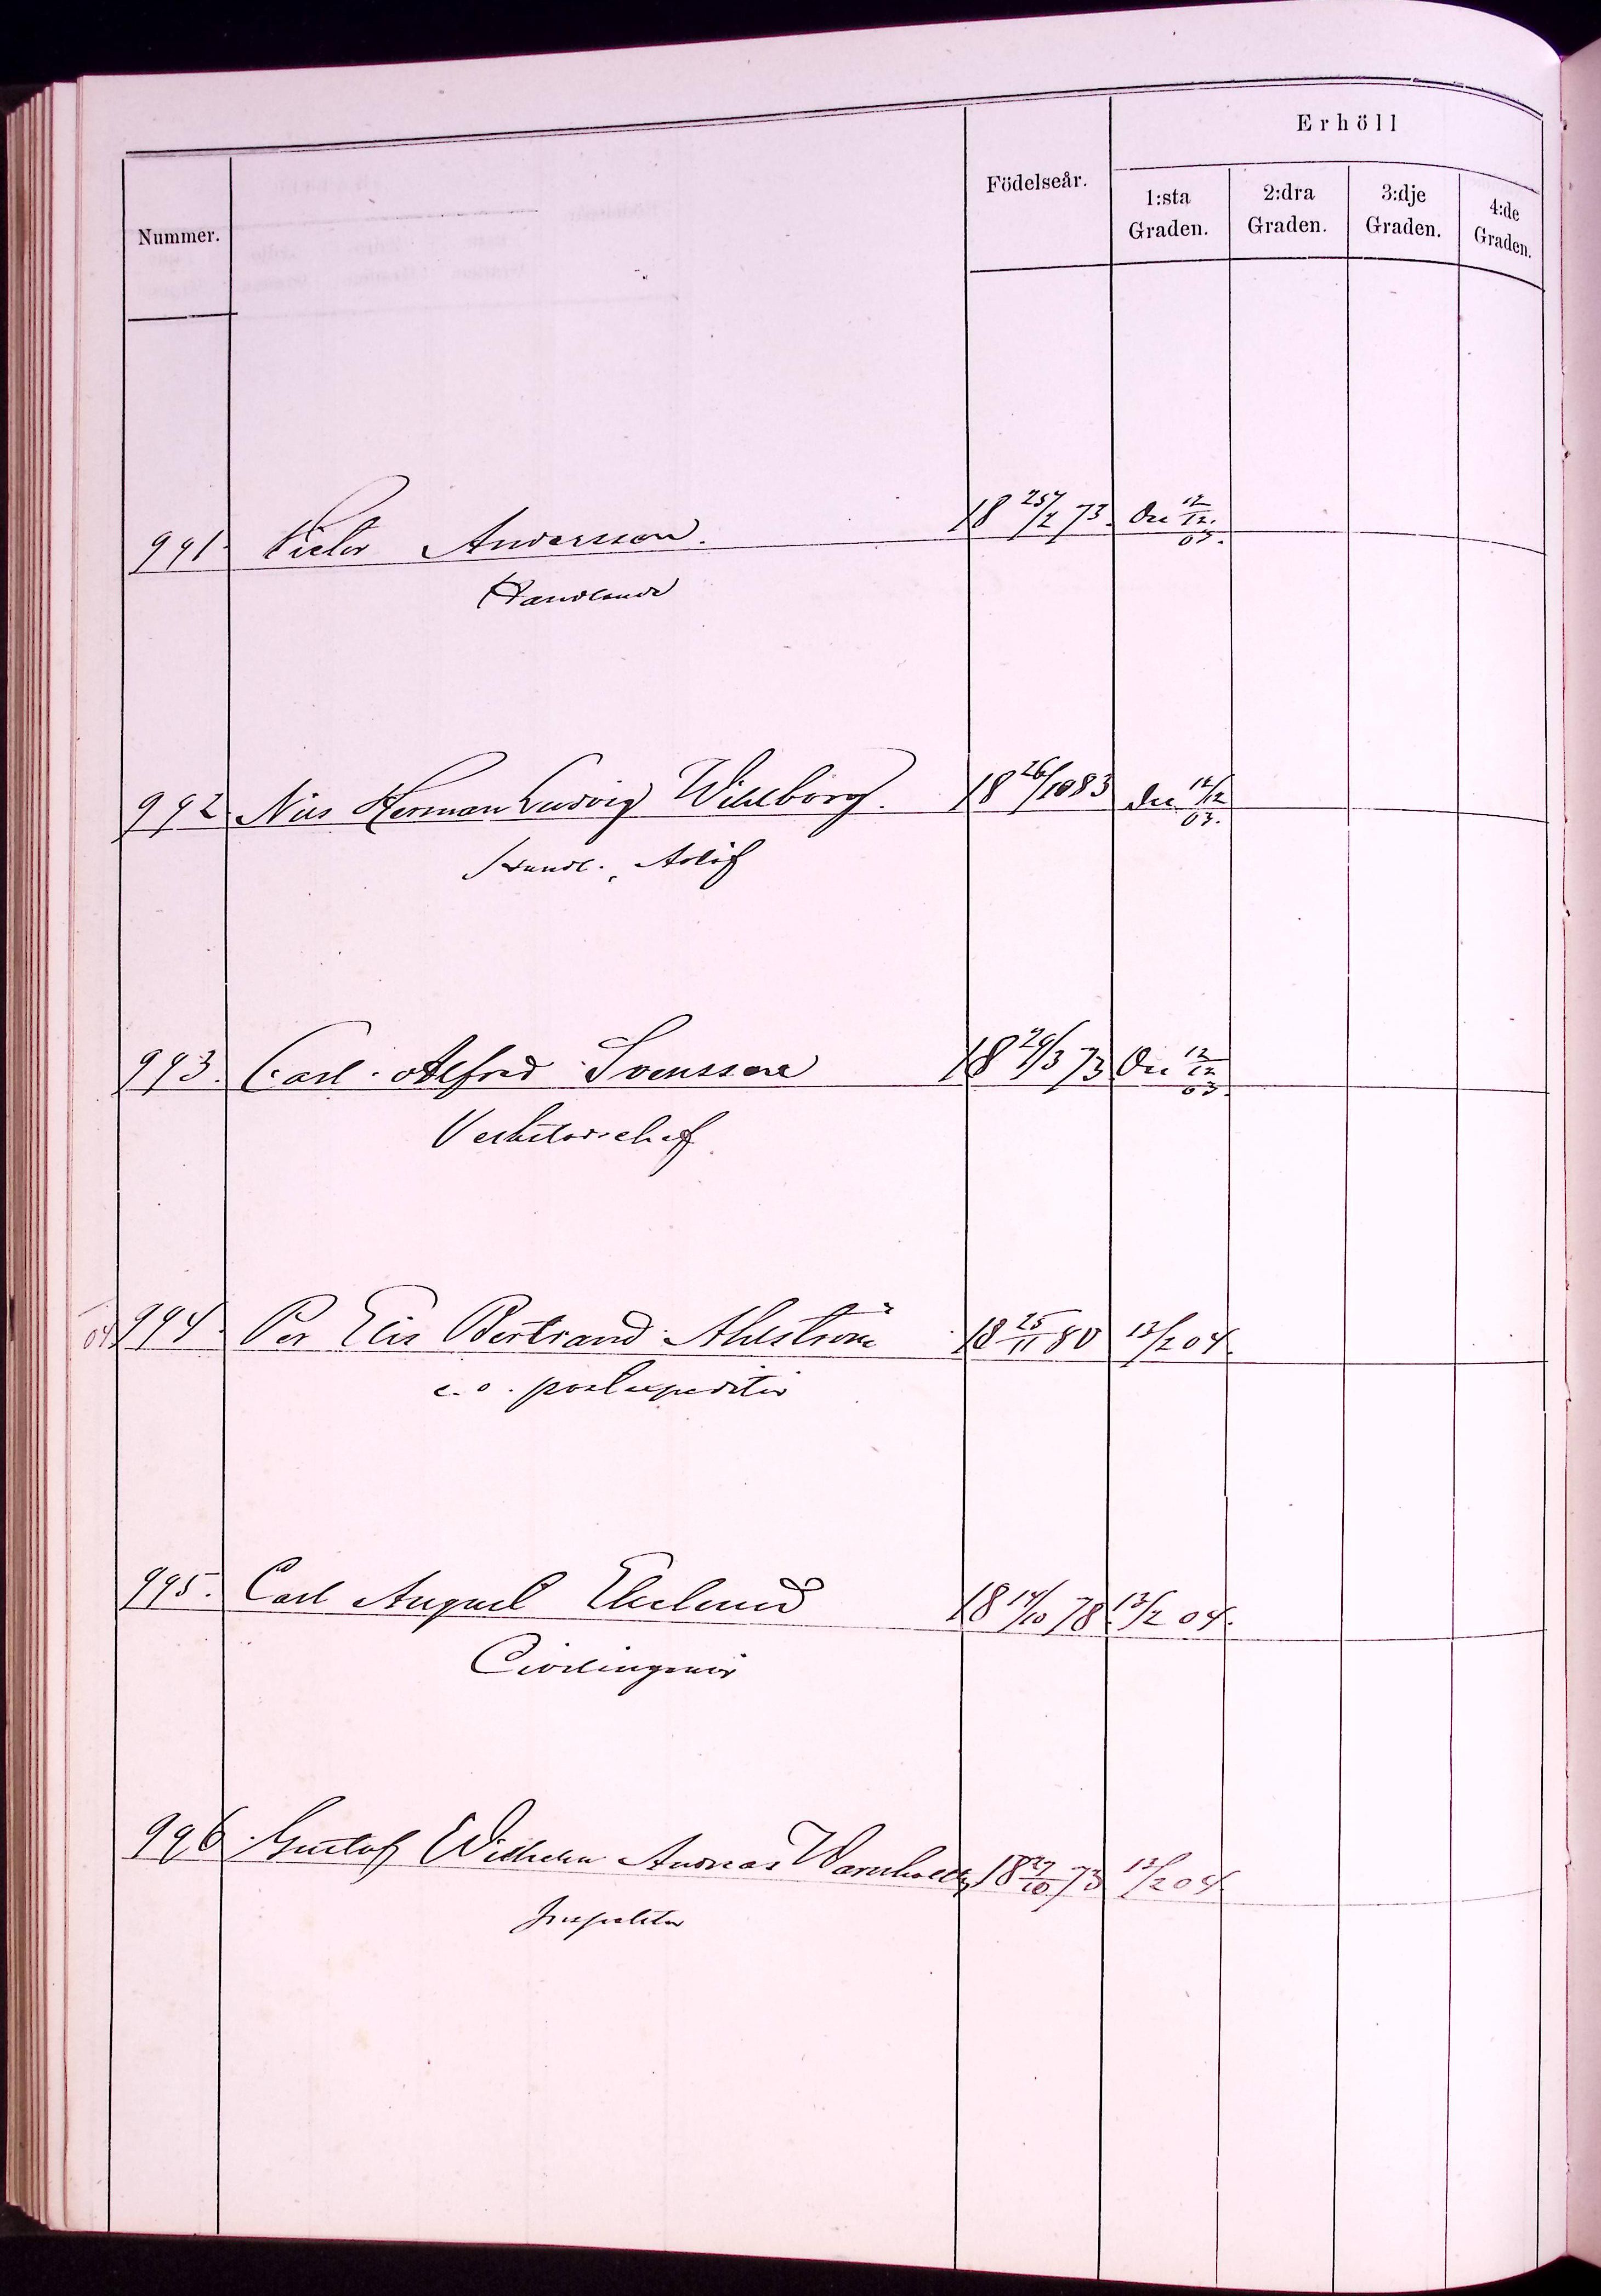 Erhöll
Nummer.
Födelseår.
1:sta Graden.
2:dra Graden.
3:dje Graden.
4:de Graden.
991. Victor Andersson. 18 25/2 73. Den 12/12. 03.
Handlande
992 Nils Herman Ludvig Wihlborg. 18 26/10 83 Den 12/12 03.
Handl.
993. Carl Alfred Svensson 18 29/3 73 Den 12/12 03.
04. 994. Per Elis Bertrand Ahlström 18 25/11 80 13/2 04.
e. o. postexpeditör
995. Carl August Ekelund 18 14/10 78. 13/2 04.
Civilingeniör
996 Gustaf Wilhelm Andreas Warnholtz 18 27/10 73 13/2 04
Inspektor